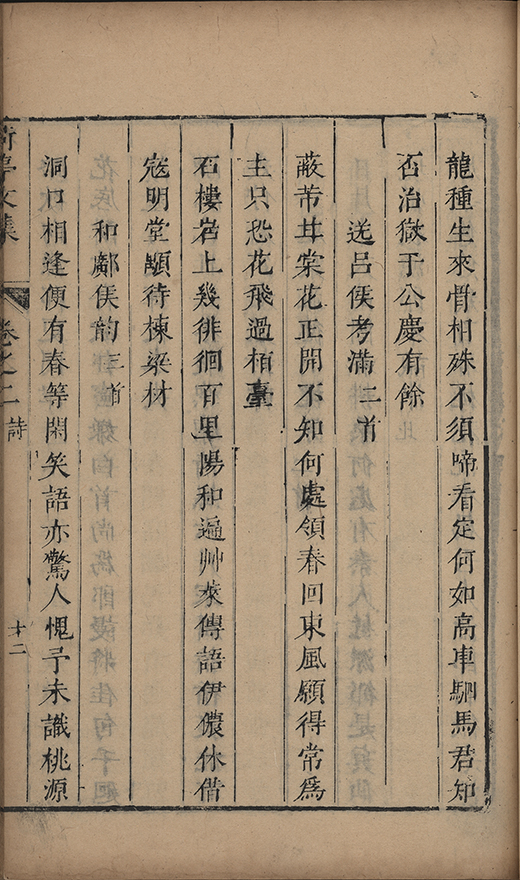 龍種生來骨相殊不須啼看定何如高車駟馬君知
否治獄于公慶有餘
送呂侯考滿二首
蔽芾甘棠花正開不知何處領春回東風願得常爲
主只恐花飛過栢臺
石樓岩上幾徘徊百里陽和遍艸萊傳語伊儂休借
宼明堂顒待棟梁材
和鄺侯韵三首
洞口相逢便有春等閑笑語亦驚人愧予未識桃源
卷之二 詩
十二